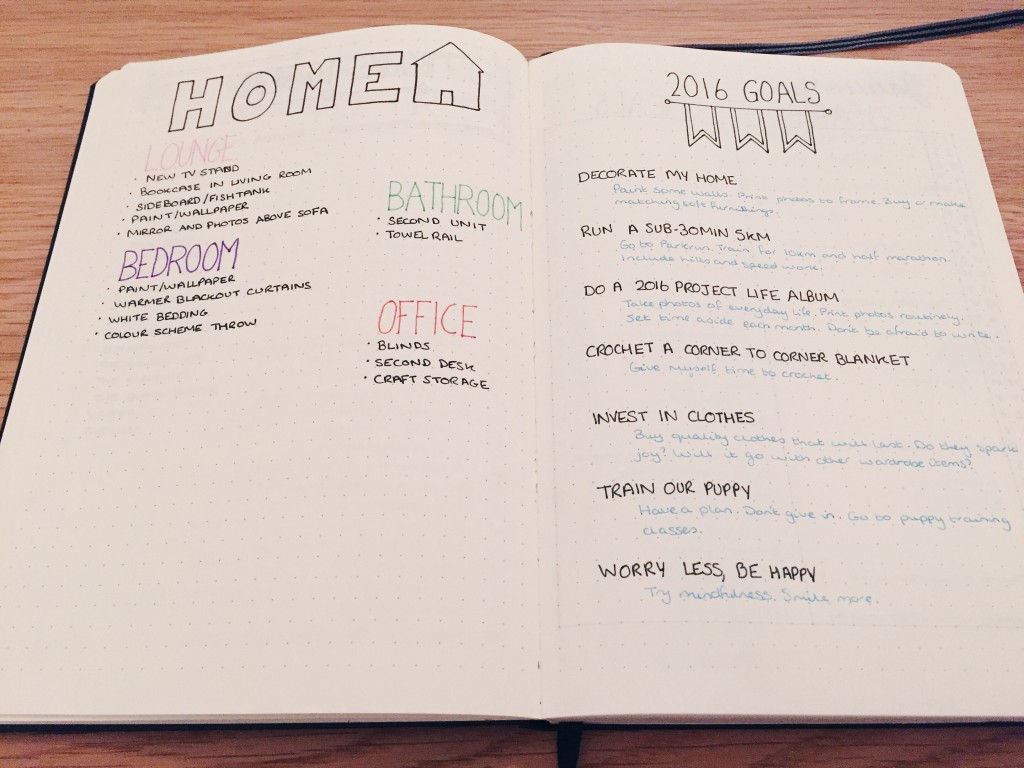 HOME
LOUNGE
· NEW TV STAND
· BOOKCASE IN LIVING ROOM
· SIDEBOARD/FISHTANK
· PAINT/WALLPAPER
· MIRROR AND PHOTOS ABOVE SOFA
BEDROOM
· PAINT/WALLPAPER
· WARMER BLACKOUT CURTAINS
· WHITE BEDDING
· COLOUR SCHEME THROW
BATHROOM
· SECOND UNIT
· TOWEL RAIL
OFFICE
· BLINDS
· SECOND DESK
· CRAFT STORAGE
2016 GOALS
DECORATE MY HOME
Paint some walls. Print photos to frame. Buy or make
matching soft furnishings.
RUN A SUB-30MIN 5KM
Go to Parkrun. Train for 10km and half marathon.
Include hills and speed work.
DO A 2016 PROJECT LIFE ALBUM
Take photos of everyday life. Print photos routinely.
Set time aside each month. Don't be afraid to write.
CROCHET A CORNER TO CORNER BLANKET
Give myself time to crochet.
INVEST IN CLOTHES
Buy quality clothes that will last. Do they spark
joy? Will it go with other wardrobe items?
TRAIN OUR PUPPY
Have a plan. Don't give in. Go to puppy training
classes.
WORRY LESS, BE HAPPY
Try mindfulness. Smile more.